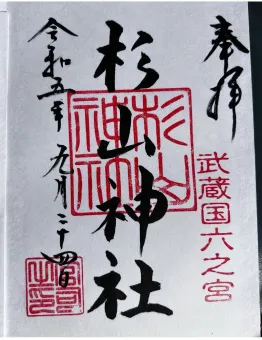 奉拝
武蔵国六之宮
杉山神社
杉山神社
令和五年九月二十四日